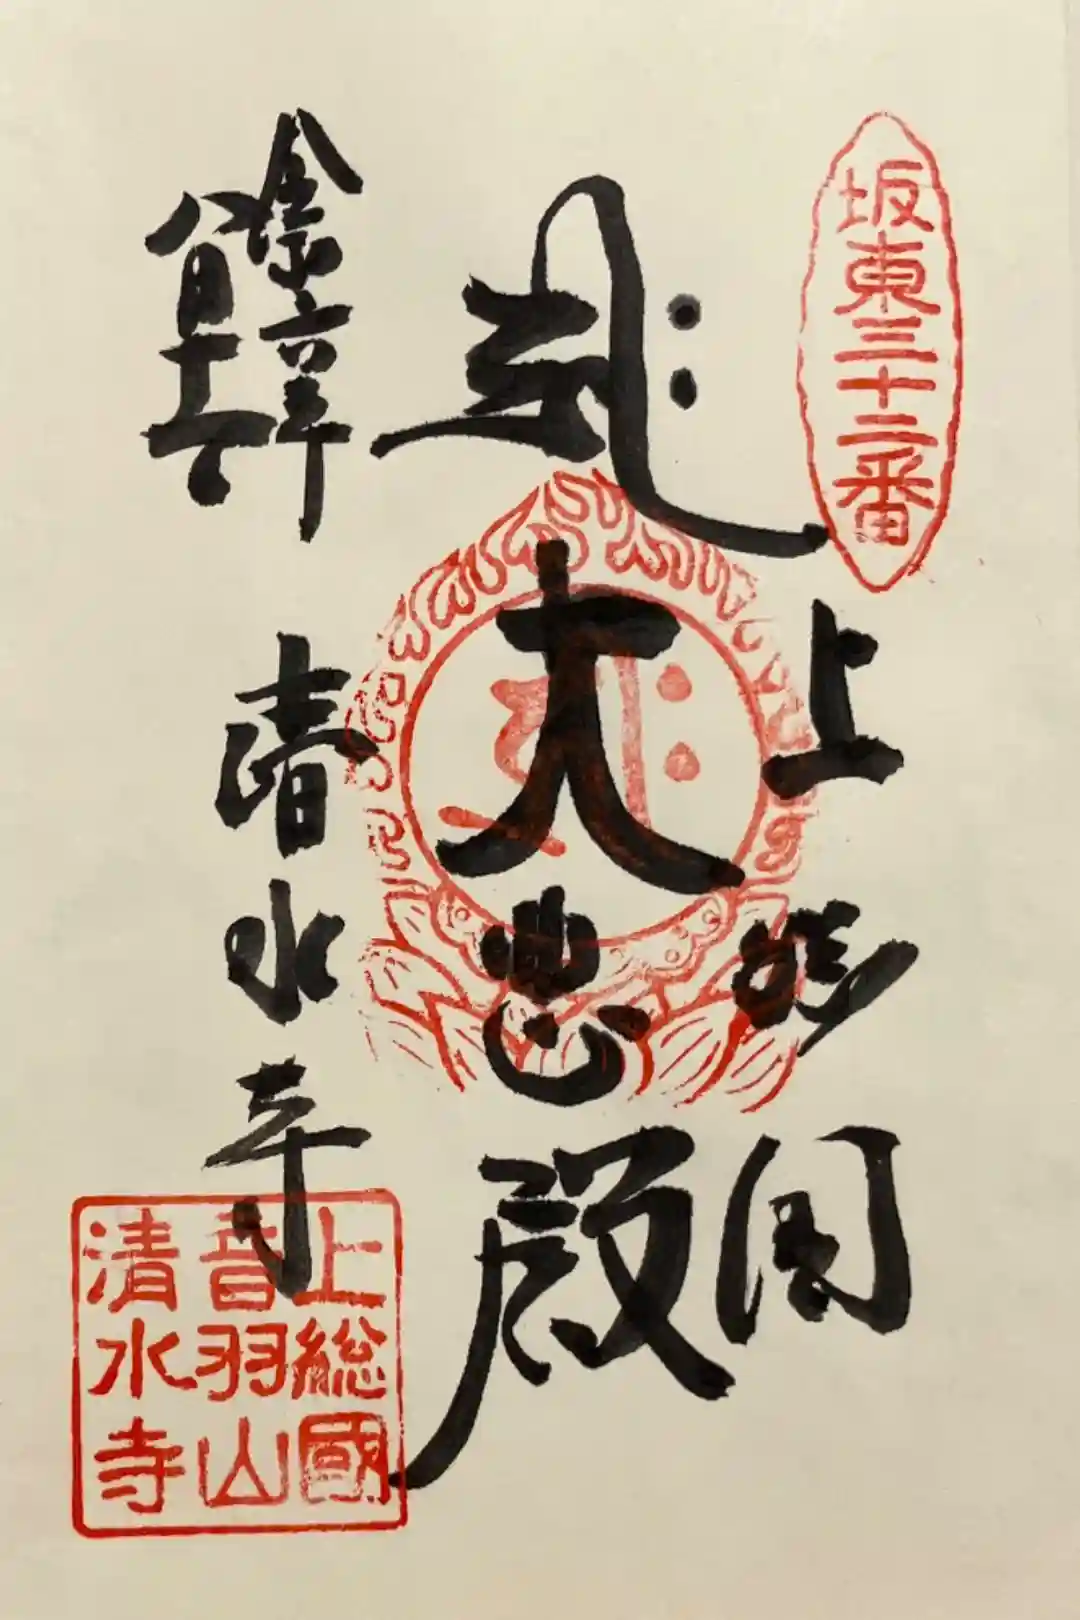 坂東三十二番
上総国
大悲殿
令和六年
八月十六
清水寺
上總國
音羽山
清水寺